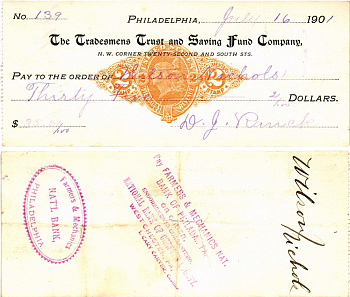 No. 139 PHILADELPHIA, July 16 1901
The Tradesmens Trust and Saving Fund Company,
N. W. CORNER TWENTY-SECOND AND SOUTH STS.
PAY TO THE ORDER OF Wilson Nichols
Thirty 2/100 DOLLARS.
$ D. J.
Farmers & Mechanics
NAT'L BANK,
PHILADELPHIA
Pay FARMERS & MECHANICS NAT.
BANK OF PHILADA, PA.
NATIONAL BANK OF
WEST
Wilson Nichols